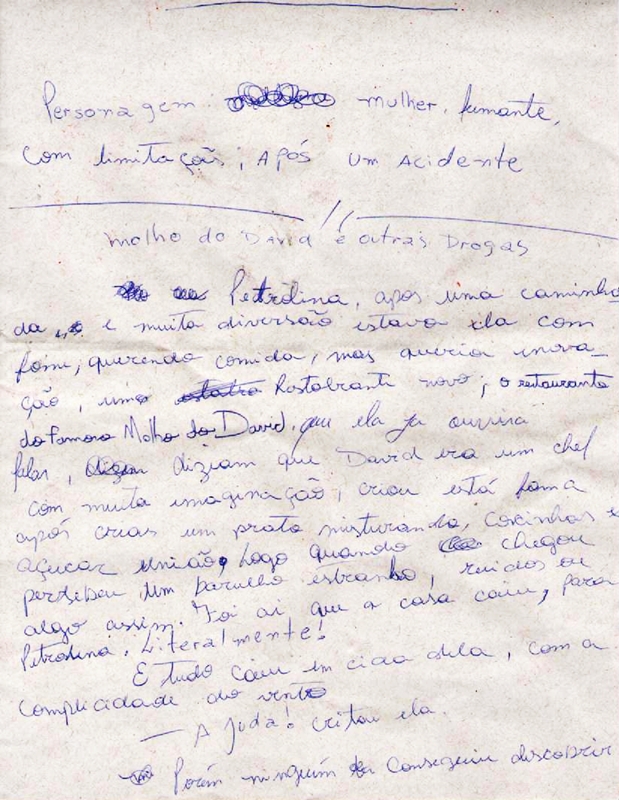 Personagem mulher, fumante,
com limitação, Após um Acidente
Molho do David e outras Drogas
Petrolina, após uma caminha
da, e muita diversão estava ela com
fome, querendo comida, mas queria inova_
ção, uma Restobrante novo; o restaurante
do famoso Molho do David, que ela ja ouvira
falar, diziam que David era um chef
com muita imaginação, criou está fama
após criar um prato misturando, coxinhas e
açucar união, Logo quando chegou
percebeu um barulho estranho, ruidos ou
algo assim. Foi ai que a casa caiu, para
Petrolina. Literalmente!
E tudo caiu em cima dela, com a
complicidade do vento
— Ajuda! critou ela.
Porém ninguém conseguiu descobrir